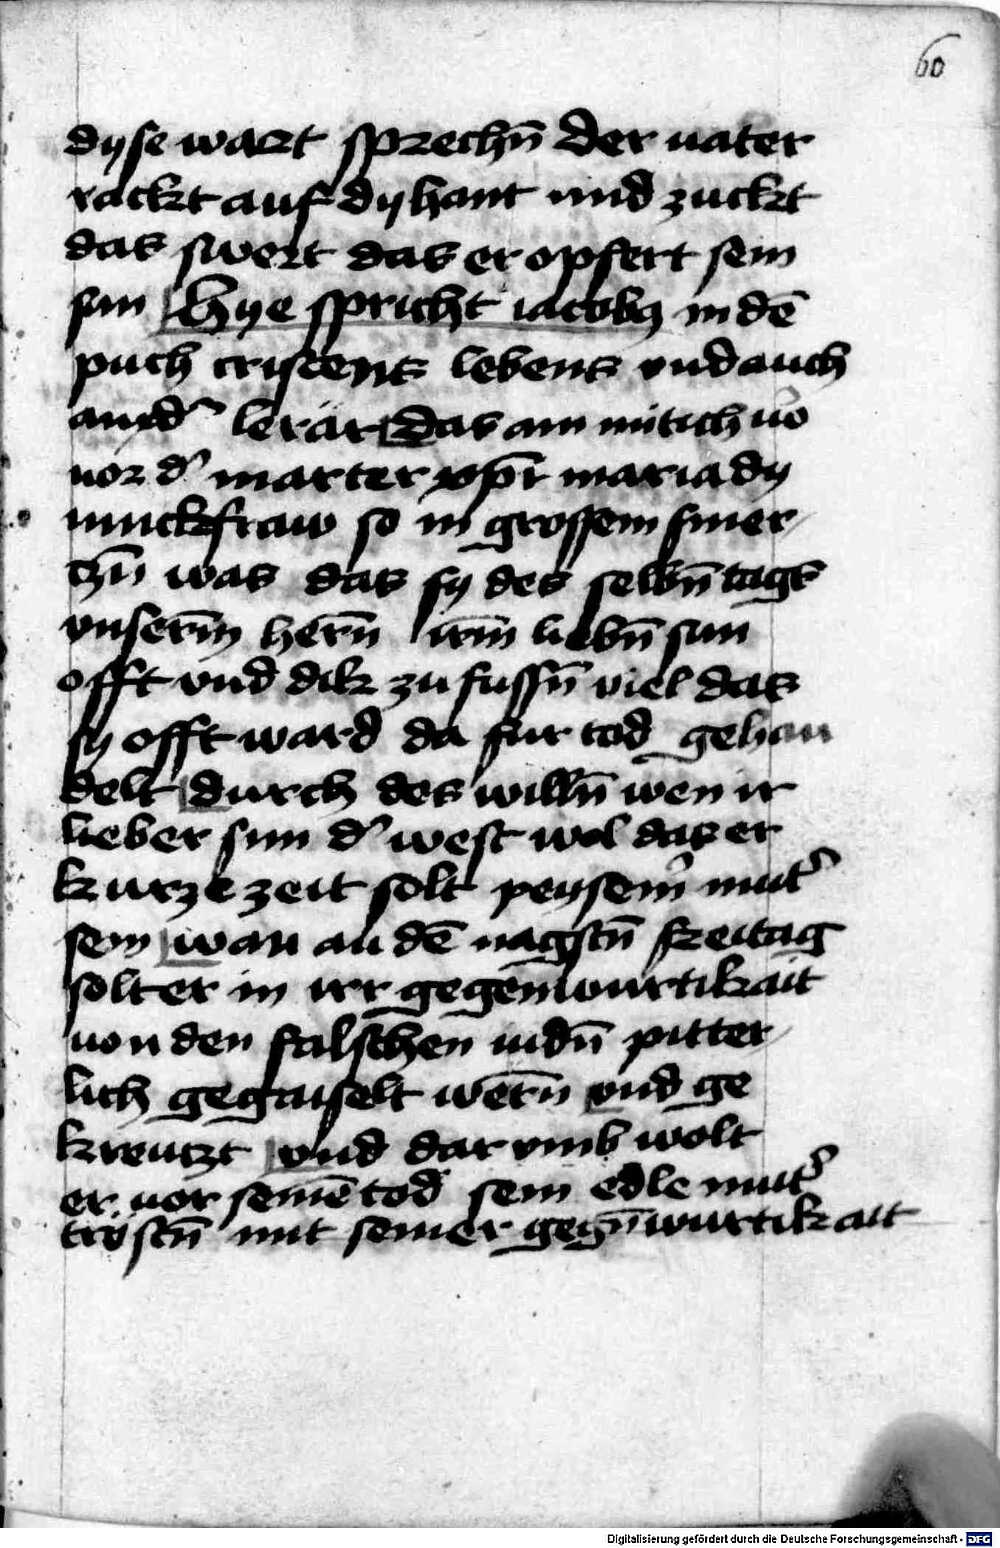 60
dyse wart sprechn̄ der vater
rackt auf dy hant und zuckt
das swert das er opfert sein
sun Hye spricht iacobꝯ in dē
puch cristens lebens vnd auch
and' lerär Das am mitich vo
vor d' marter xp̄i maria dy
iunckfraw so in grossem smer
czn̄ was das sy des selbn̄ tags
vnserm̄ hern̄ irm̄ liebn̄ sun
offt vnd dik zu fussn̄ viel das
sy offt ward da für tod gehan
delt durch des willn̄ wen ir
lieber sun d' west wol das er
kurze zeit solt pey seinr mut'
sein wan an dē nagstn̄ freitag
solt er in irr gegenwurtikait
von den falschen iudn̄ pitter
lich gegaiselt wern̄ vnd ge
kreutzt vnd dar vmb wolt
er vor seinē tod sein edle mut'
tröstn̄ mit seiner gegn̄wurtikait
Digitalisierung gefördert durch die Deutsche Forschungsgemeinschaft - DFG